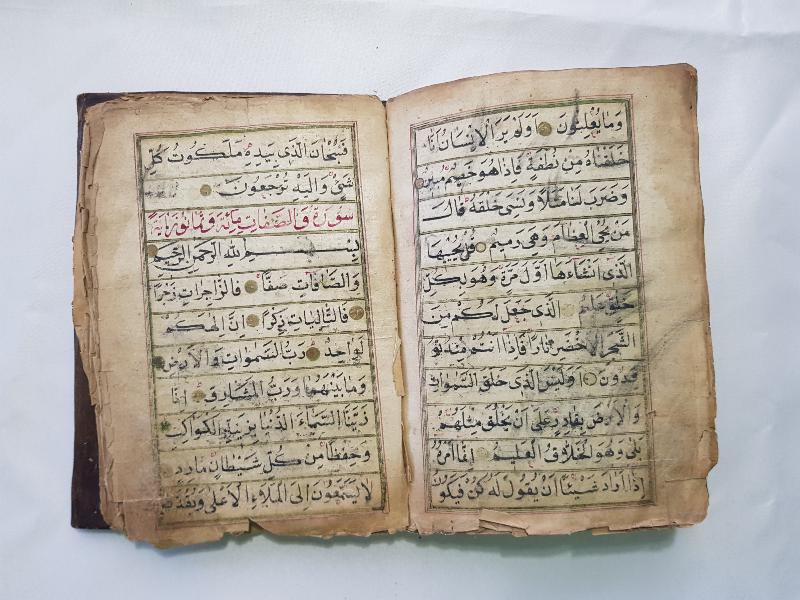 وَمَا يُعْلِنُونَ اَوَلَمْ يَرَ الْاِنْسَانُ اَنَّا
خَلَقْنَاهُ مِنْ نُطْفَةٍ فَاِذَا هُوَ خَصِيمٌ مُبِينٌ
وَضَرَبَ لَنَا مَثَلًا وَنَسِيَ خَلْقَهُ قَالَ
مَنْ يُحْيِ الْعِظَامَ وَهِيَ رَمِيمٌ قُلْ يُحْيِيهَا
الَّذِى اَنْشَاءَهَا اَوَّلَ مَرَّةٍ وَهُوَ بِكُلِّ
خَلْقٍ عَلِيمٌ الَّذِى جَعَلَ لَكُمْ مِنَ
الشَّجَرِ الْاَخْضَرِ نَارًا فَاِذَا اَنْتُمْ مِنْهُ تُو
قِدُونَ اَوَلَيْسَ الَّذِى خَلَقَ السَّمٰوَاتِ
وَالْاَرْضَ بِقَادِرٍ عَلَى اَنْ يَخْلُقَ مِثْلَهُمْ
بَلَى وَهُوَ الْخَلَّاقُ الْعَلِيمُ اِنَّمَا اَمْرُهُ
اِذَا اَرَادَ شَيْئًا اَنْ يَقُولَ لَهُ كُنْ فَيَكُونُ
فَسُبْحَانَ الَّذِى بِيَدِهِ مَلَكُوتُ كُلِّ
شَىْءٍ وَاِلَيْهِ تُرْجَعُونَ
سورة والصفات مائة وثمانون اية
بِسْمِ اللهِ الرَّحْمٰنِ الرَّحِيمِ
وَالصَّافَّاتِ صَفًّا فَالزَّاجِرَاتِ زَجْرًا
فَالتَّالِيَاتِ ذِكْرًا اِنَّ اِلٰهَكُمْ
لَوَاحِدٌ رَبُّ السَّمٰوَاتِ وَالْاَرْضِ
وَمَا بَيْنَهُمَا وَرَبُّ الْمَشَارِقِ اِنَّا
زَيَّنَّا السَّمَاءَ الدُّنْيَا بِزِينَةٍ الْكَوَاكِبِ
وَحِفْظًا مِنْ كُلِّ شَيْطَانٍ مَارِدٍ
لَا يَسَّمَّعُونَ اِلَى الْمَلَاءِ الْاَعْلَى وَيُقْذَفُونَ